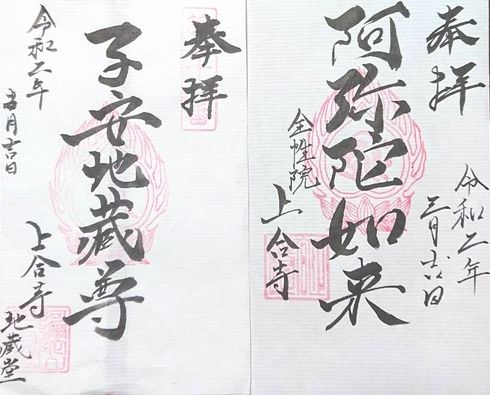 奉拝
令和二年
三月吉日
阿弥陀如来
全性院
上合寺
奉拝
子安地蔵尊
上合寺
地蔵堂
令和二年